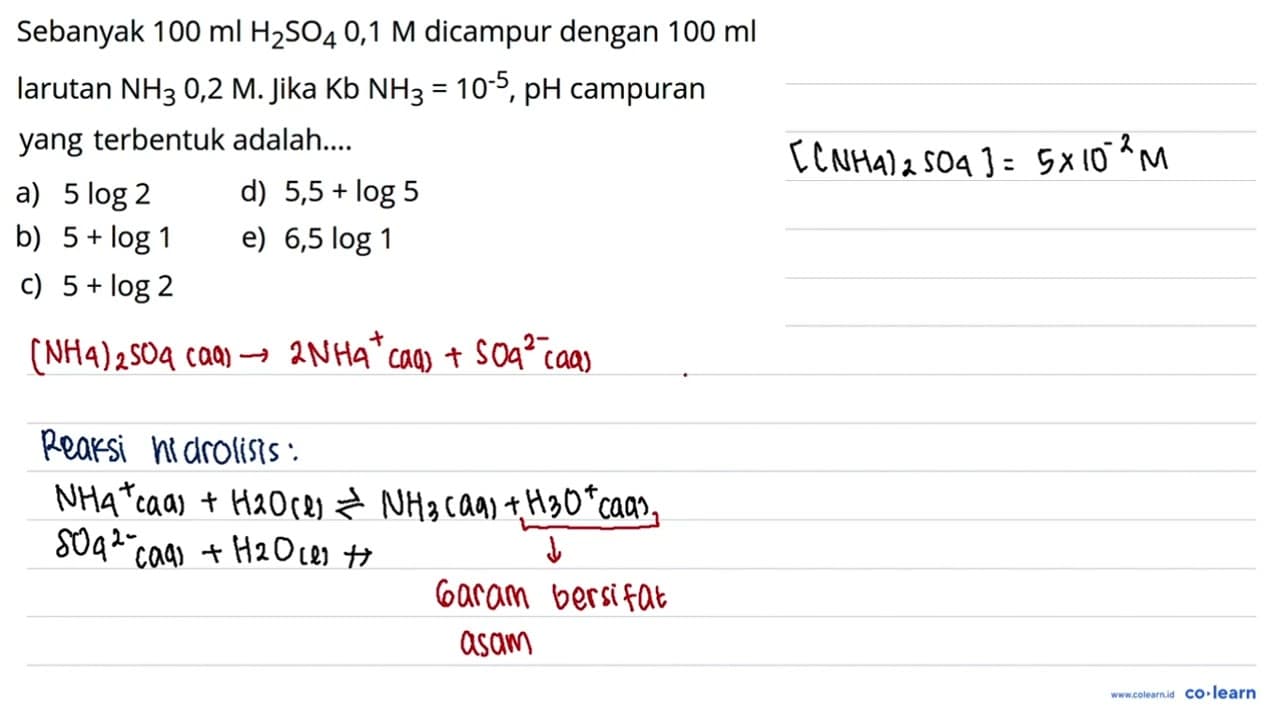 Sebanyak 100 ml H₂SO₄ 0,1 M dicampur dengan 100 ml
larutan NH₃ 0,2 M. Jika Kb NH₃ = 10⁻⁵, pH campuran
yang terbentuk adalah....
a) 5 log 2 d) 5,5 + log 5
b) 5 + log 1 e) 6,5 log 1
c) 5 + log 2
[(NH4)2SO4] = 5 x 10⁻² M
(NH4)2SO4 (aq) → 2NH4⁺ (aq) + SO4²⁻ (aq)
Reaksi hidrolisis :
NH4⁺(aq) + H2O(l) ⇌ NH3(aq) + H3O⁺(aq)
SO4²⁻(aq) + H2O(l) ↛
↓
Garam bersifat
asam
www.colearn.id co·learn